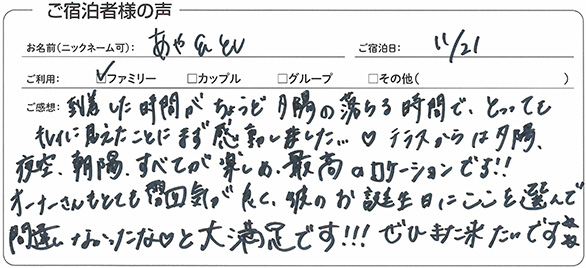 ご宿泊者様の声
お名前(ニックネーム可): あや & とし ご宿泊日: 11/21
ご利用: ☑ファミリー □カップル □グループ □その他( )
ご感想: 到着した時間がちょうど夕陽の落ちる時間で、とっても
キレイに見えたことにまず感動しました…♡ テラスからは夕陽、
夜空、朝陽、すべてが楽しめ、最高のロケーションです!!
オーナーさんもとても雰囲気が良く、彼のお誕生日にここを選んで
間違いなかったな♡と大満足です!!! ぜひまた来たいです☆☆